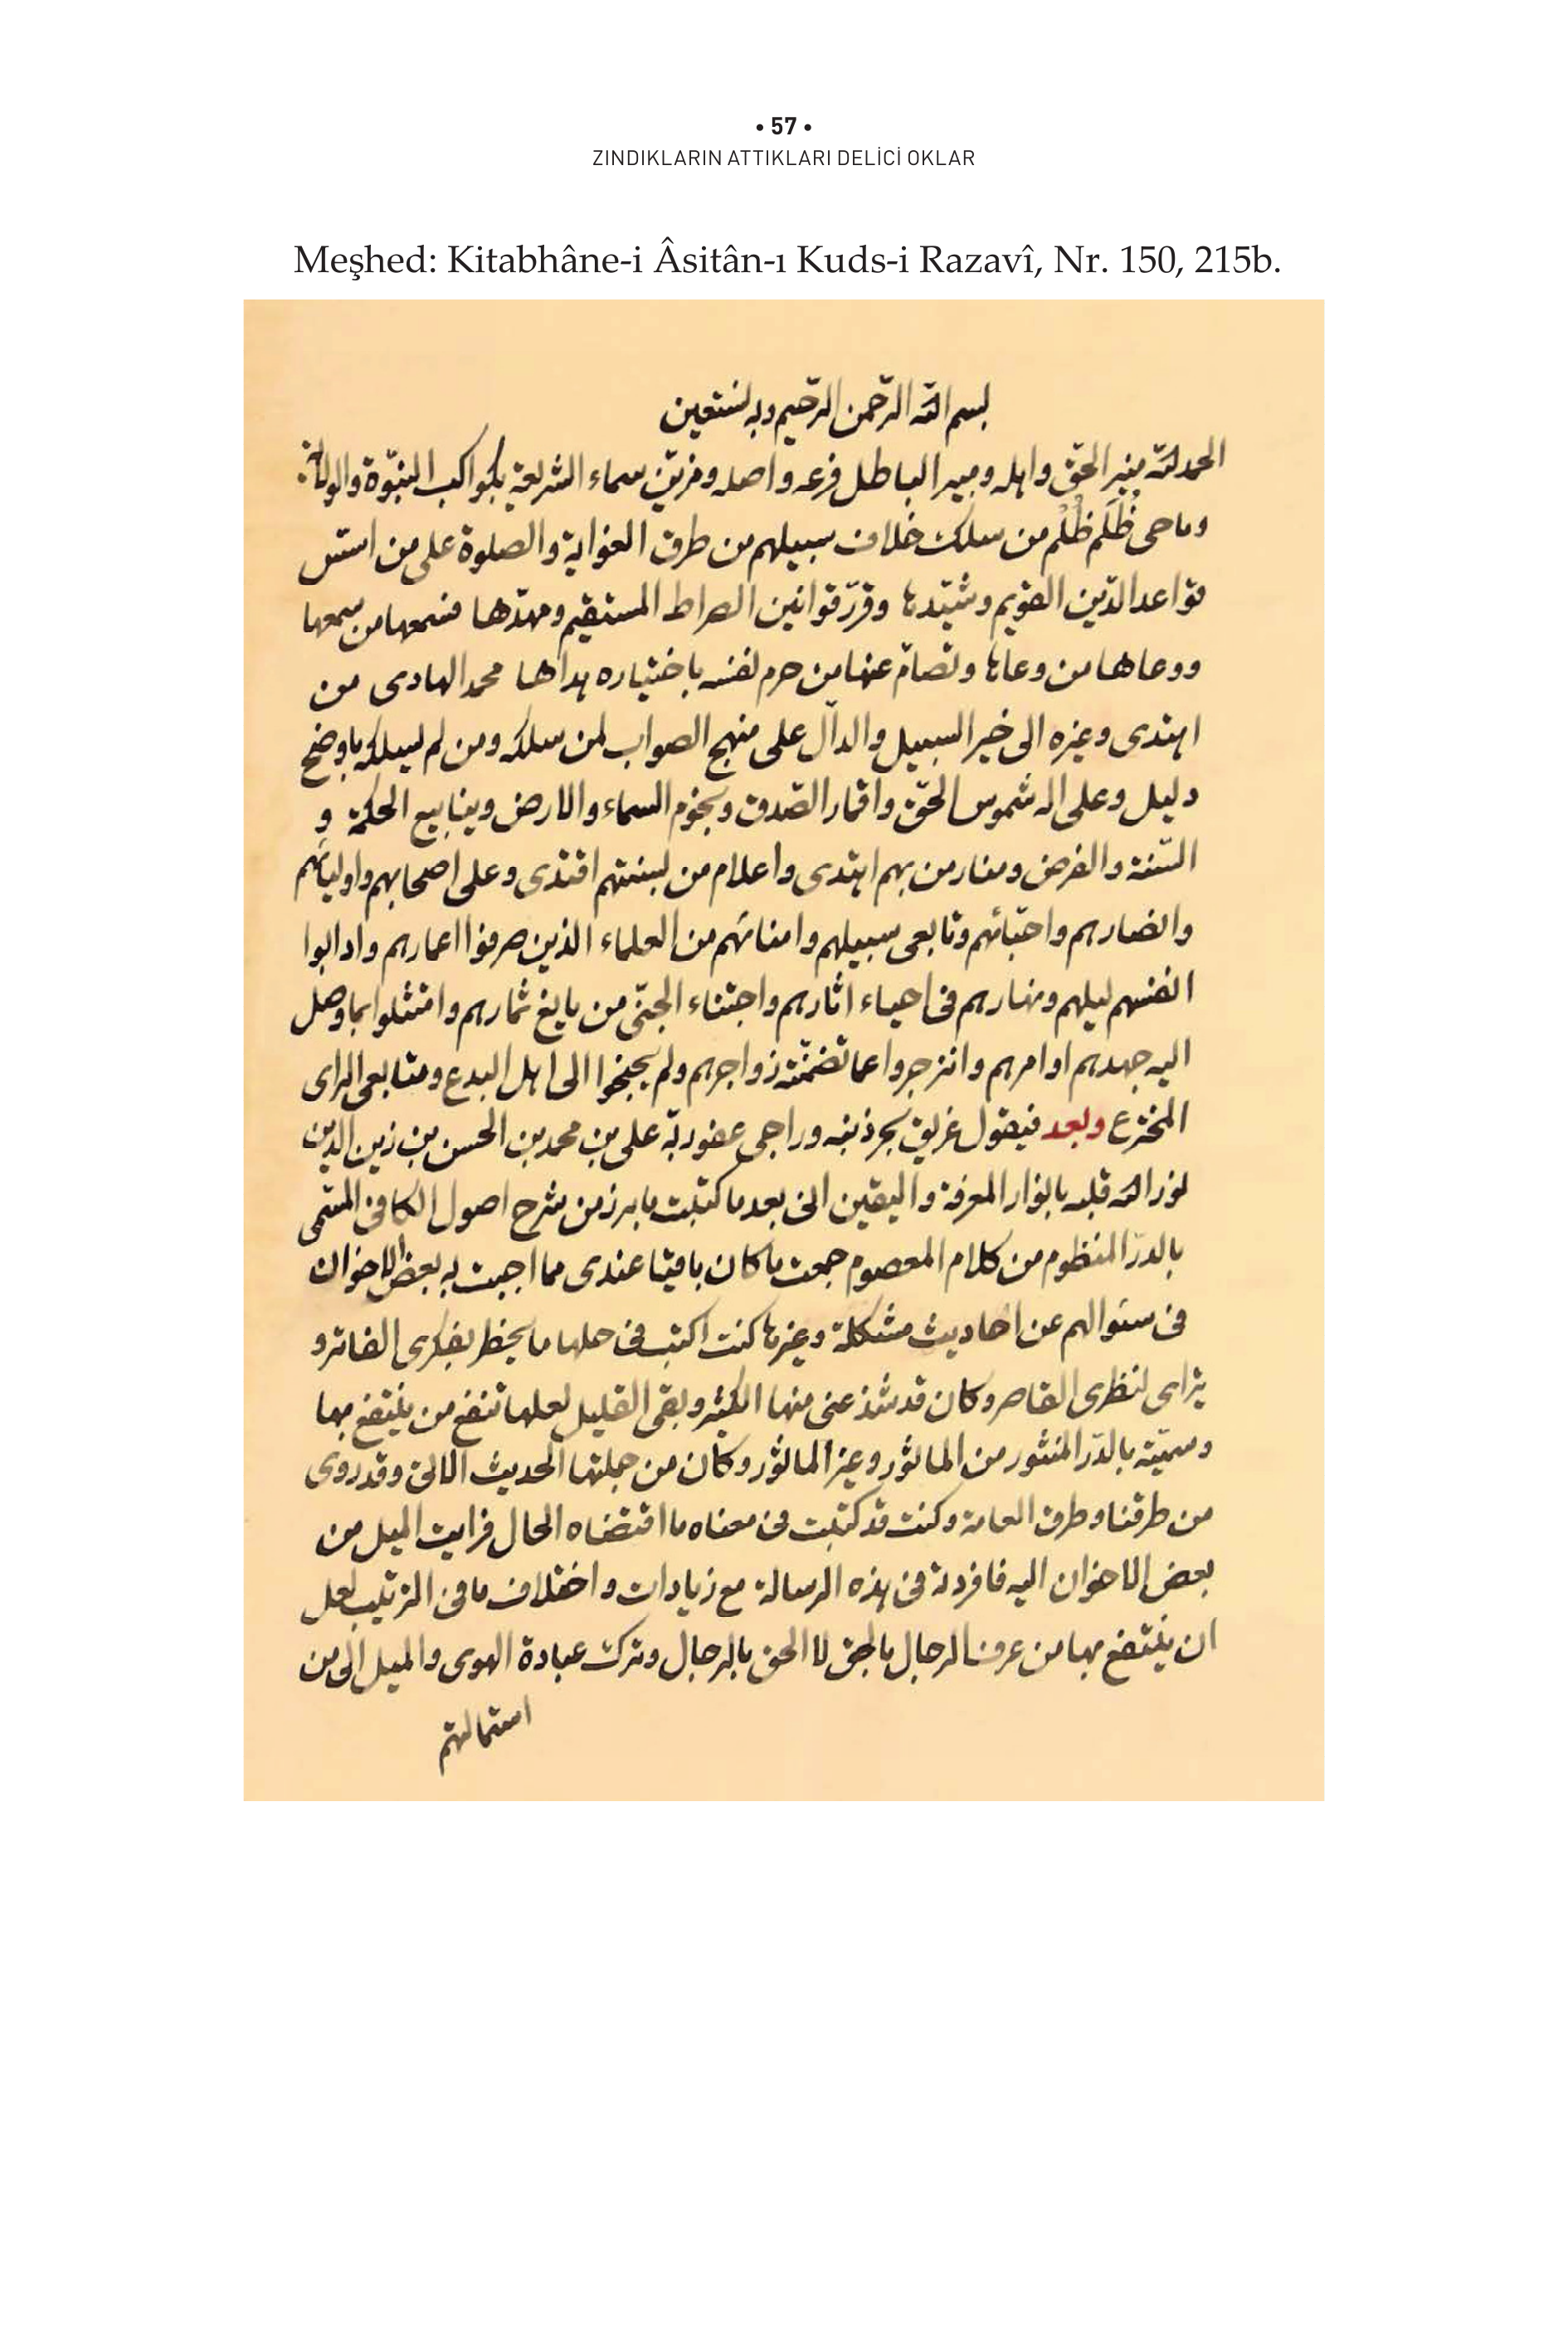 • 57 •
ZINDIKLARIN ATTIKLARI DELİCİ OKLAR
Meşhed: Kitabhâne-i Âsitân-ı Kuds-i Razavî, Nr. 150, 215b.
بسم الله الرّحمن الرّحيم وبه نستعين
الحمد لله منير الحقّ واهله ومبير الباطل فرعه واصله ومزيّن سماء الشريعة بكواكب النبوّة والولاية
وماحى ظُلَم ظُلْم من سلك خلاف سبيلهم من طرق الغواية والصلوة على من اسّس
قواعد الدّين القويم وشيّدها وقرّر قوانين الصراط المستقيم ومهدّها فسمعها من سمعها
ووعاها من وعاها وتصامّ عنها من حرم نفسه باختياره هداها محمد الهادى من
اهتدى وغيره الى خير السبيل والدالّ على منهج الصواب لمن سلكه ومن لم يسلكه باوضح
دليل وعلى اله شموس الحقّ واقمار الصّدق ونجوم السماء والارض وينابيع الحكمة و
السّنة والفرض ومنار من بهم اهتدى واعلام من لسنتهم اقتدى وعلى اصحابهم واوليائهم
وانصارهم واحبّائهم وتابعى سبيلهم وامنائهم من العلماء الذين صرفوا اعمارهم وادابوا
انفسهم ليلهم ونهارهم فى احياء اثارهم واجتناء الجنّى من يانع ثمارهم وامتثلوا بما وصل
اليه جهدهم اوامرهم وانزجروا عما تضمّنته زواجرهم ولم يجنحوا الى اهل البدع ومتابعى الراى
المخترع وبعد فيقول غريق بحر ذنبه وراجى عفو ربّه على بن محمد بن الحسن بن زين الدين
نور الله قلبه بانوار المعرفة واليقين انى بعد ما كتبت ما برز من شرح اصول الكافى المسمّى
بالدرّ المنظوم من كلام المعصوم جمعت ما كان باقيا عندى مما اجبت به بعض الاخوان
فى سئوالهم عن احاديث مشكلة وغيرها كنت اكتب فى حلها ما يخطر بفكرى الفاتر و
يتراى لنظرى القاصر وكان قد شذ عنى منها الكثير وبقى القليل لعلها تنفع من ينتفع بها
وسميّته بالدّر المنثور من الماثور وغير الماثور وكان من جملتها الحديث الاتى وقد روى
من طرقنا وطرق العامة وكنت قد كتبت فى معناه ما اقتضاه الحال فرايت الميل من
بعض الاخوان اليه فافردته فى هذه الرسالة مع زيادات واختلاف ما فى الترتيب لعل
ان ينتفع بها من عرف الرجال بالحق لا الحق بالرجال وترك عبادة الهوى والميل الى من
استمالتهم